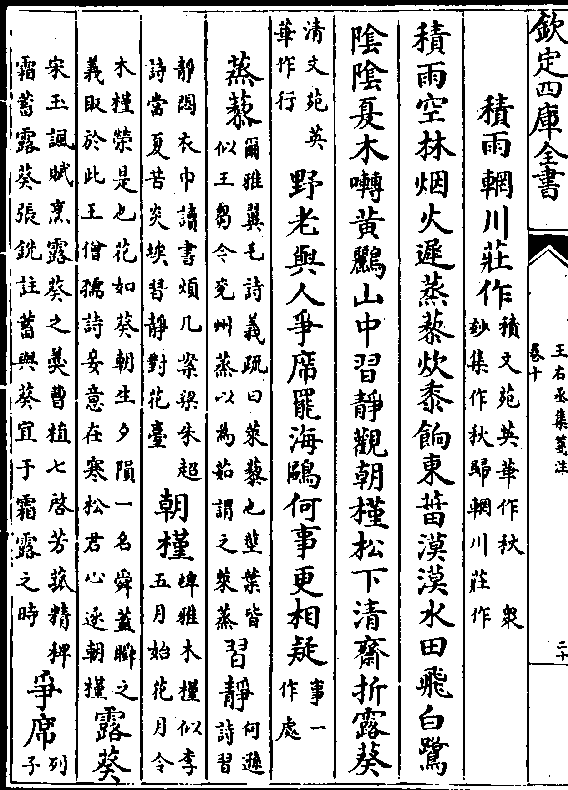 欽定四庫全書
王右丞集箋注
卷十
二十
積雨輞川莊作積文苑英華作秋 衆
玅集作秋歸輞川莊作
積雨空林烟火遲蒸藜炊黍餉東菑漠漠水田飛白鷺
陰陰夏木囀黃鸝山中習靜觀朝槿松下清齋折露葵
清文苑英
華作行
野老與人爭席罷海鷗何事更相疑事一
作處
蒸藜爾雅翼毛詩義疏曰萊藜也莖葉皆
似王芻今兗州蒸以為茹謂之萊蒸
習靜何遜
詩習
靜閟衣巾讀書煩几案梁朱超
詩當夏苦炎埃習靜對花臺
朝槿埤雅木槿似李
五月始花月令
木槿榮是也花如葵朝生夕隕一名舜蓋瞬之
義取於此王僧孺詩妾意在寒松君心逐朝槿
露葵
宋玉諷賦烹露葵之羹曹植七啓芳菰精稗
霜蓄露葵張銑註蓄與葵宜于霜露之時
爭席列
子